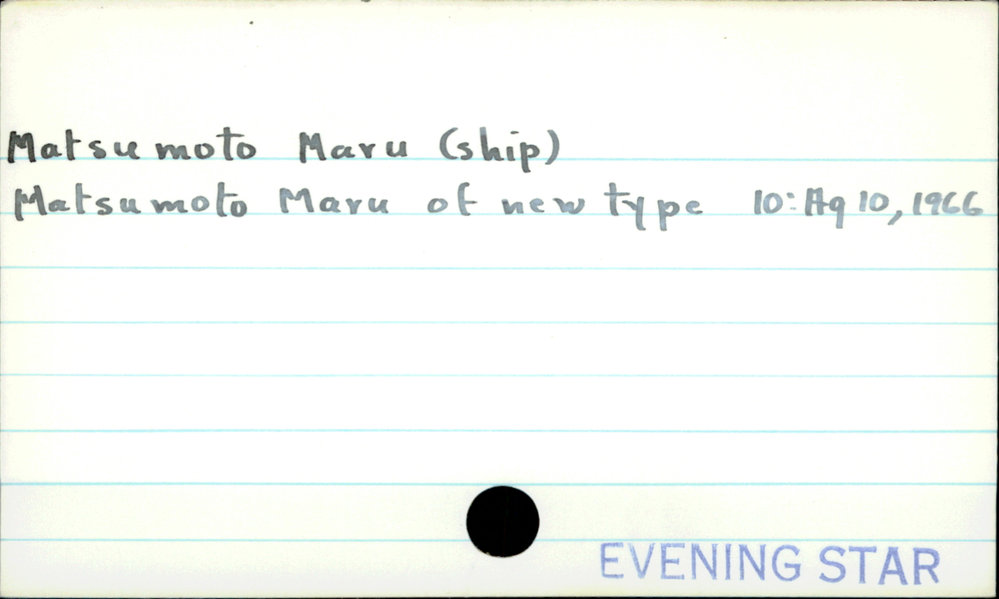 Matsumoto Maru (ship)
Matsumoto Maru of new type 10: Ag 10, 1966
EVENING STAR